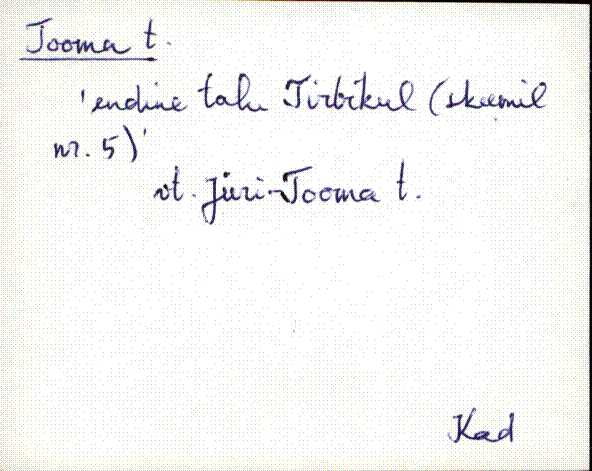 Tooma t.
'endine talu Tirbikul (skeemil
nr. 5)'
vt. Jüri-Tooma t.
Kad